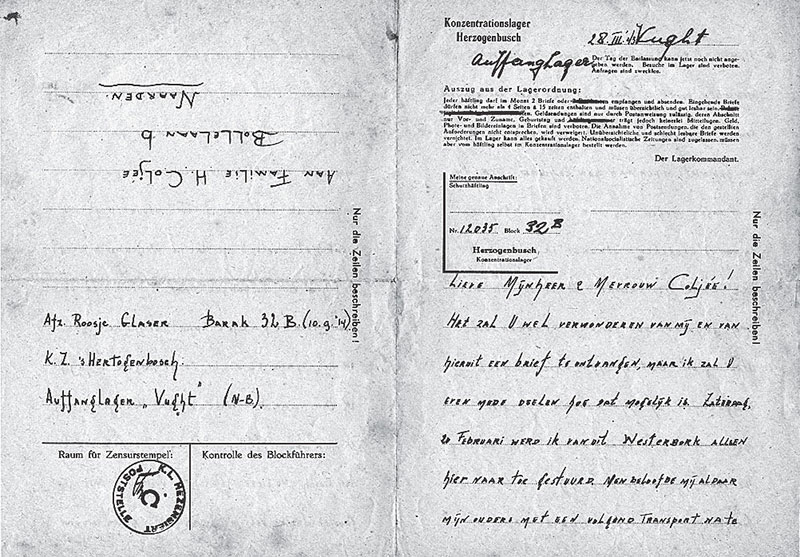 AAN FAMILIE H. COLJÉE
BOLLELAAN 6
NAARDEN.
Nur die Zeilen beschreiben!
Afz. Roosje Glaser Barak 32 B. (10.9.'14)
K.Z. 'sHertogenbosch.
Auffanglager „Vught” (N-B).
Raum für Zensurstempel:
Kontrolle des Blockführers:
POSTSTELLE
K.L. HERZOGENBUSCH
Konzentrationslager
Herzogenbusch
28. III. '43 Vught
Auffanglager
Der Tag der Entlassung kann jetzt noch nicht ange-
geben werden. Besuche im Lager sind verboten.
Anfragen sind zwecklos.
Auszug aus der Lagerordnung:
Jeder Häftling darf im Monat 2 Briefe oder empfangen und absenden. Eingehende Briefe
dürfen nicht mehr als 4 Seiten à 15 zeilen enthalten und müssen übersichtlich und gut lesbar sein.
Geldsendungen sind nur durch Postanweisung zulässig, deren Abschnitt
nur Vor- und Zuname, Geburtstag und trägt jedoch keinerlei Mitteilungen. Geld,
Photo- und Bildereinlagen in Briefen sind verboten. Die Annahme von Postsendungen, die den gestellten
Anforderungen nicht entsprechen, wird verweigert. Unübersichtliche und schlecht lesbare Briefe werden
vernichtet. Im Lager kann alles gekauft werden. Nationalsocialistische Zeitungen sind zugelassen, müssen
aber vom häftling selbst im Konzentrationslager bestellt werden.
Der Lagerkommandant.
Meine genaue Anschrift:
Schutzhäftling
Nr. 12035 Block 32 B
Herzogenbusch
Konzentrationslager
Nur die Zeilen beschreiben!
Lieve Mijnheer & Mevrouw Coljée!
Het zal U wel verwonderen van mij en van
hieruit een brief te ontvangen, maar ik zal U
even mede deelen hoe dat mogelijk is. Zaterdag,
20 Februari werd ik vanuit Westerbork alleen
hier naar toe gestuurd. Men beloofde mij aldaar
mijn ouders met een volgend transport na te